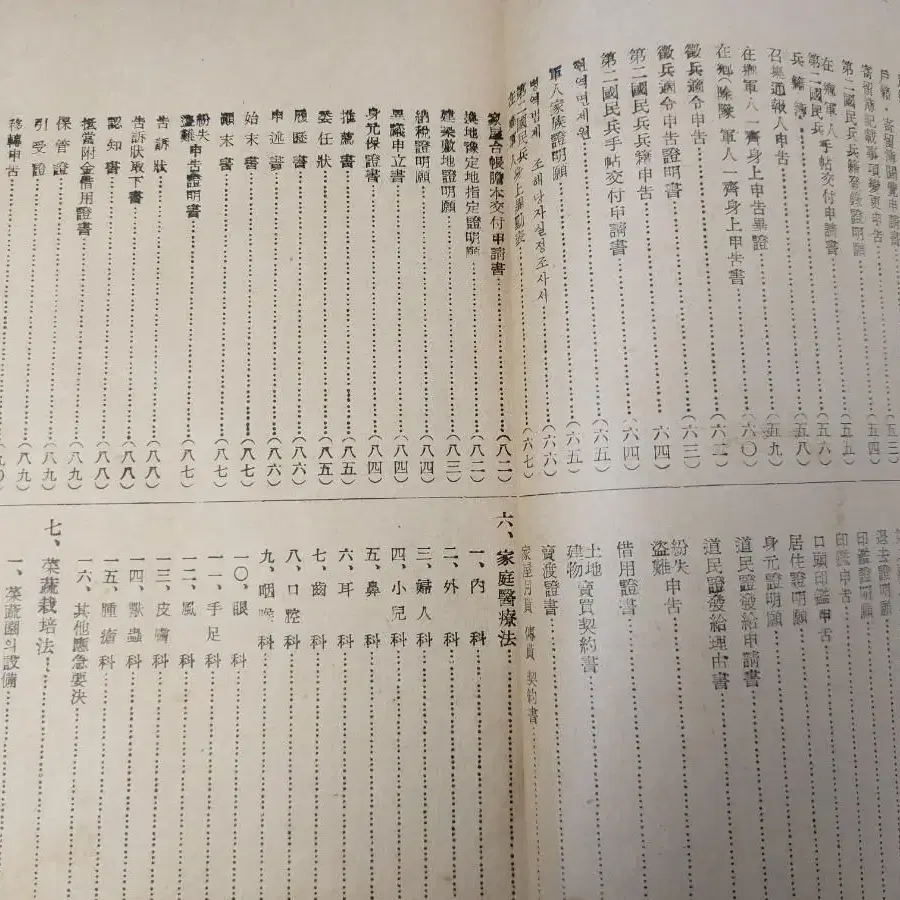 寄留簿記載事項變更申告……(五三)
第二國民兵兵籍登錄證明願……(五四)
在鄕軍人手帖交付申請書……(五五)
第二國民兵
兵籍簿……(五八)
召集通報人申告……(五九)
在鄕軍人一齊身上申告畢證……(六〇)
在鄕(除隊)軍人一齊身上申告書……(六二)
徵兵適令申告……(六三)
徵兵適令申告證明書……(六四)
第二國民兵兵籍申告……(六四)
第二國民兵手帖交付申請書……(六五)
현역면제원……(六五)
軍人家族證明願……(六六)
병역면제 조해당자실정조사서……(六六)
第二國民兵
在鄕軍人
身上異動表……(六七)
家屋台帳謄本交付申請書……(八二)
換地豫定地指定證明願……(八二)
建築敷地證明願……(八三)
納稅證明願……(八四)
異議申立書……(八四)
身元保證書……(八四)
推薦書……(八五)
委任狀……(八五)
履歷書……(八六)
申述書……(八六)
始末書……(八七)
顚末書……(八七)
紛失
盜難
申告證明書……(八七)
告訴狀……(八八)
告訴狀取下書……(八八)
認知書……(八九)
抵當附金借用證書……(八九)
保管證……(八九)
引受證……(八九)
移轉申告……(九〇)
退去證明願……
印鑑證明願……
印鑑申告……
口頭印鑑申告……
居住證明願……
身元證明願……
道民證發給申請書……
道民證發給理由書……
紛失
盜難
申告……
借用證書……
土地
建物
賣買契約書……
賣渡證書……
家屋月貰 傳貰 契約書……
六、家庭醫療法……
一、內科……
二、外科……
三、婦人科……
四、小兒科……
五、鼻科……
六、耳科……
七、齒科……
八、口腔科……
九、咽喉科……
一〇、眼科……
一一、手足科……
一二、風科……
一三、皮膚科……
一四、獸蟲科……
一五、腫瘡科……
一六、其他應急要決……
七、菜蔬栽培法……
一、菜蔬園의設備……